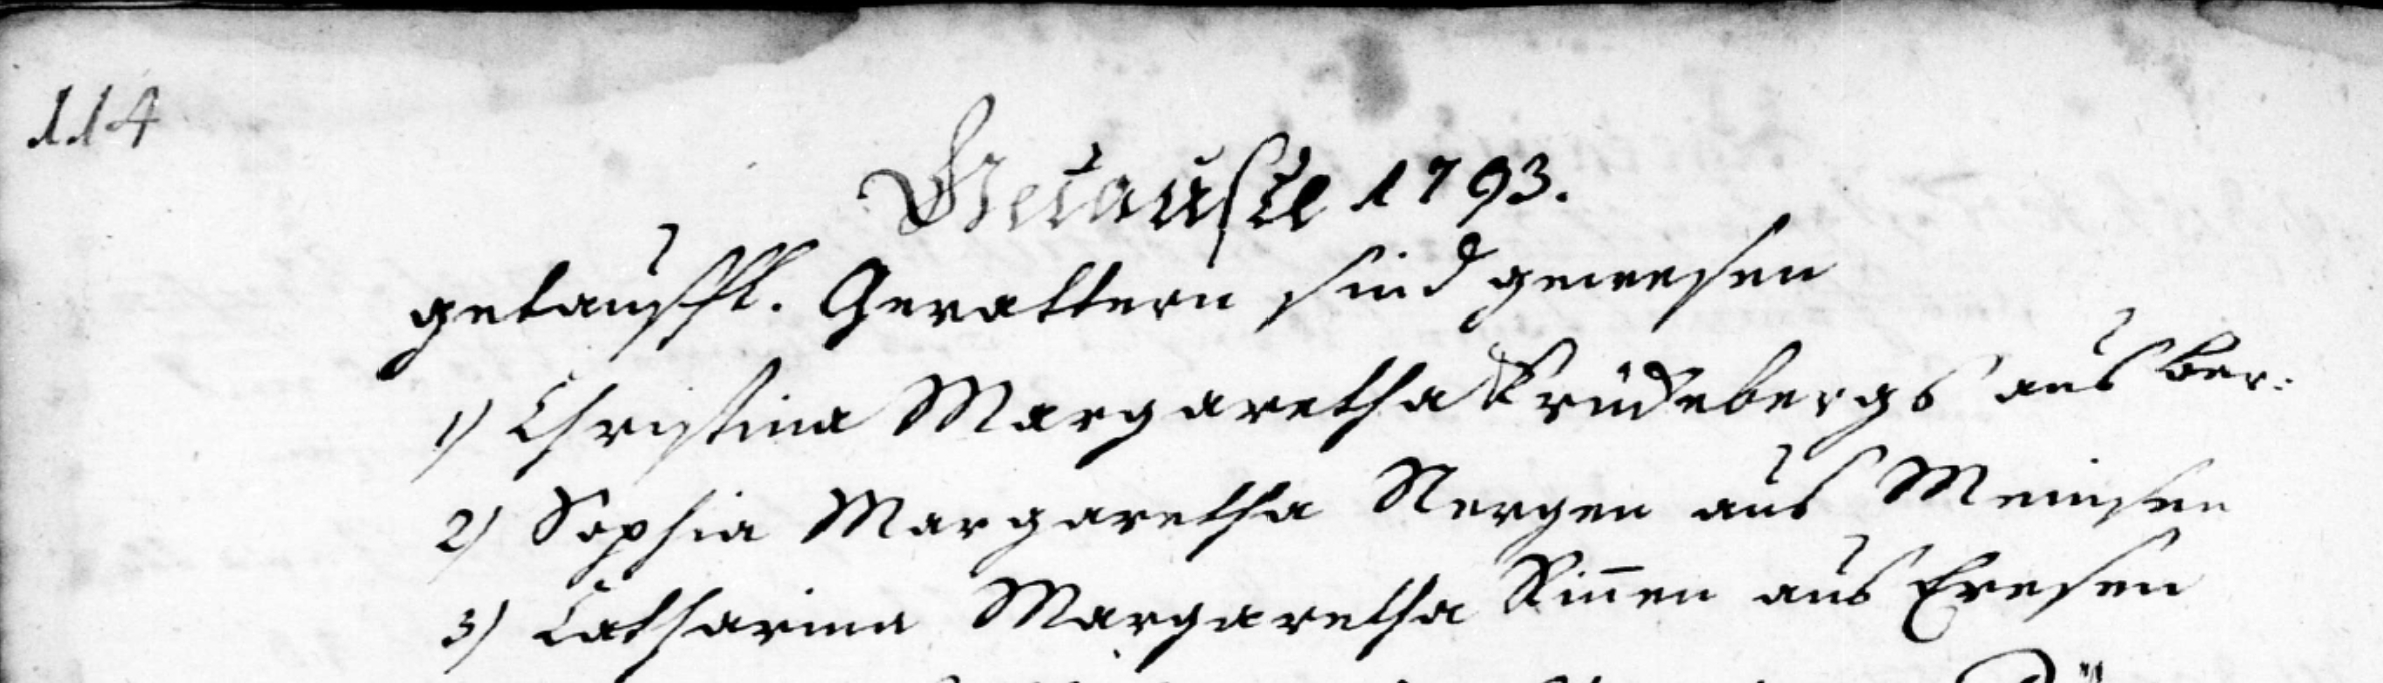 114
Getaufte 1793.
getaufft. Gevattern sind gewesen
1) Christina Margaretha Krückebergs aus Ber:
2) Sophia Margaretha Nergen aus Meinsen
3) Catharina Margaretha Rin̅en aus